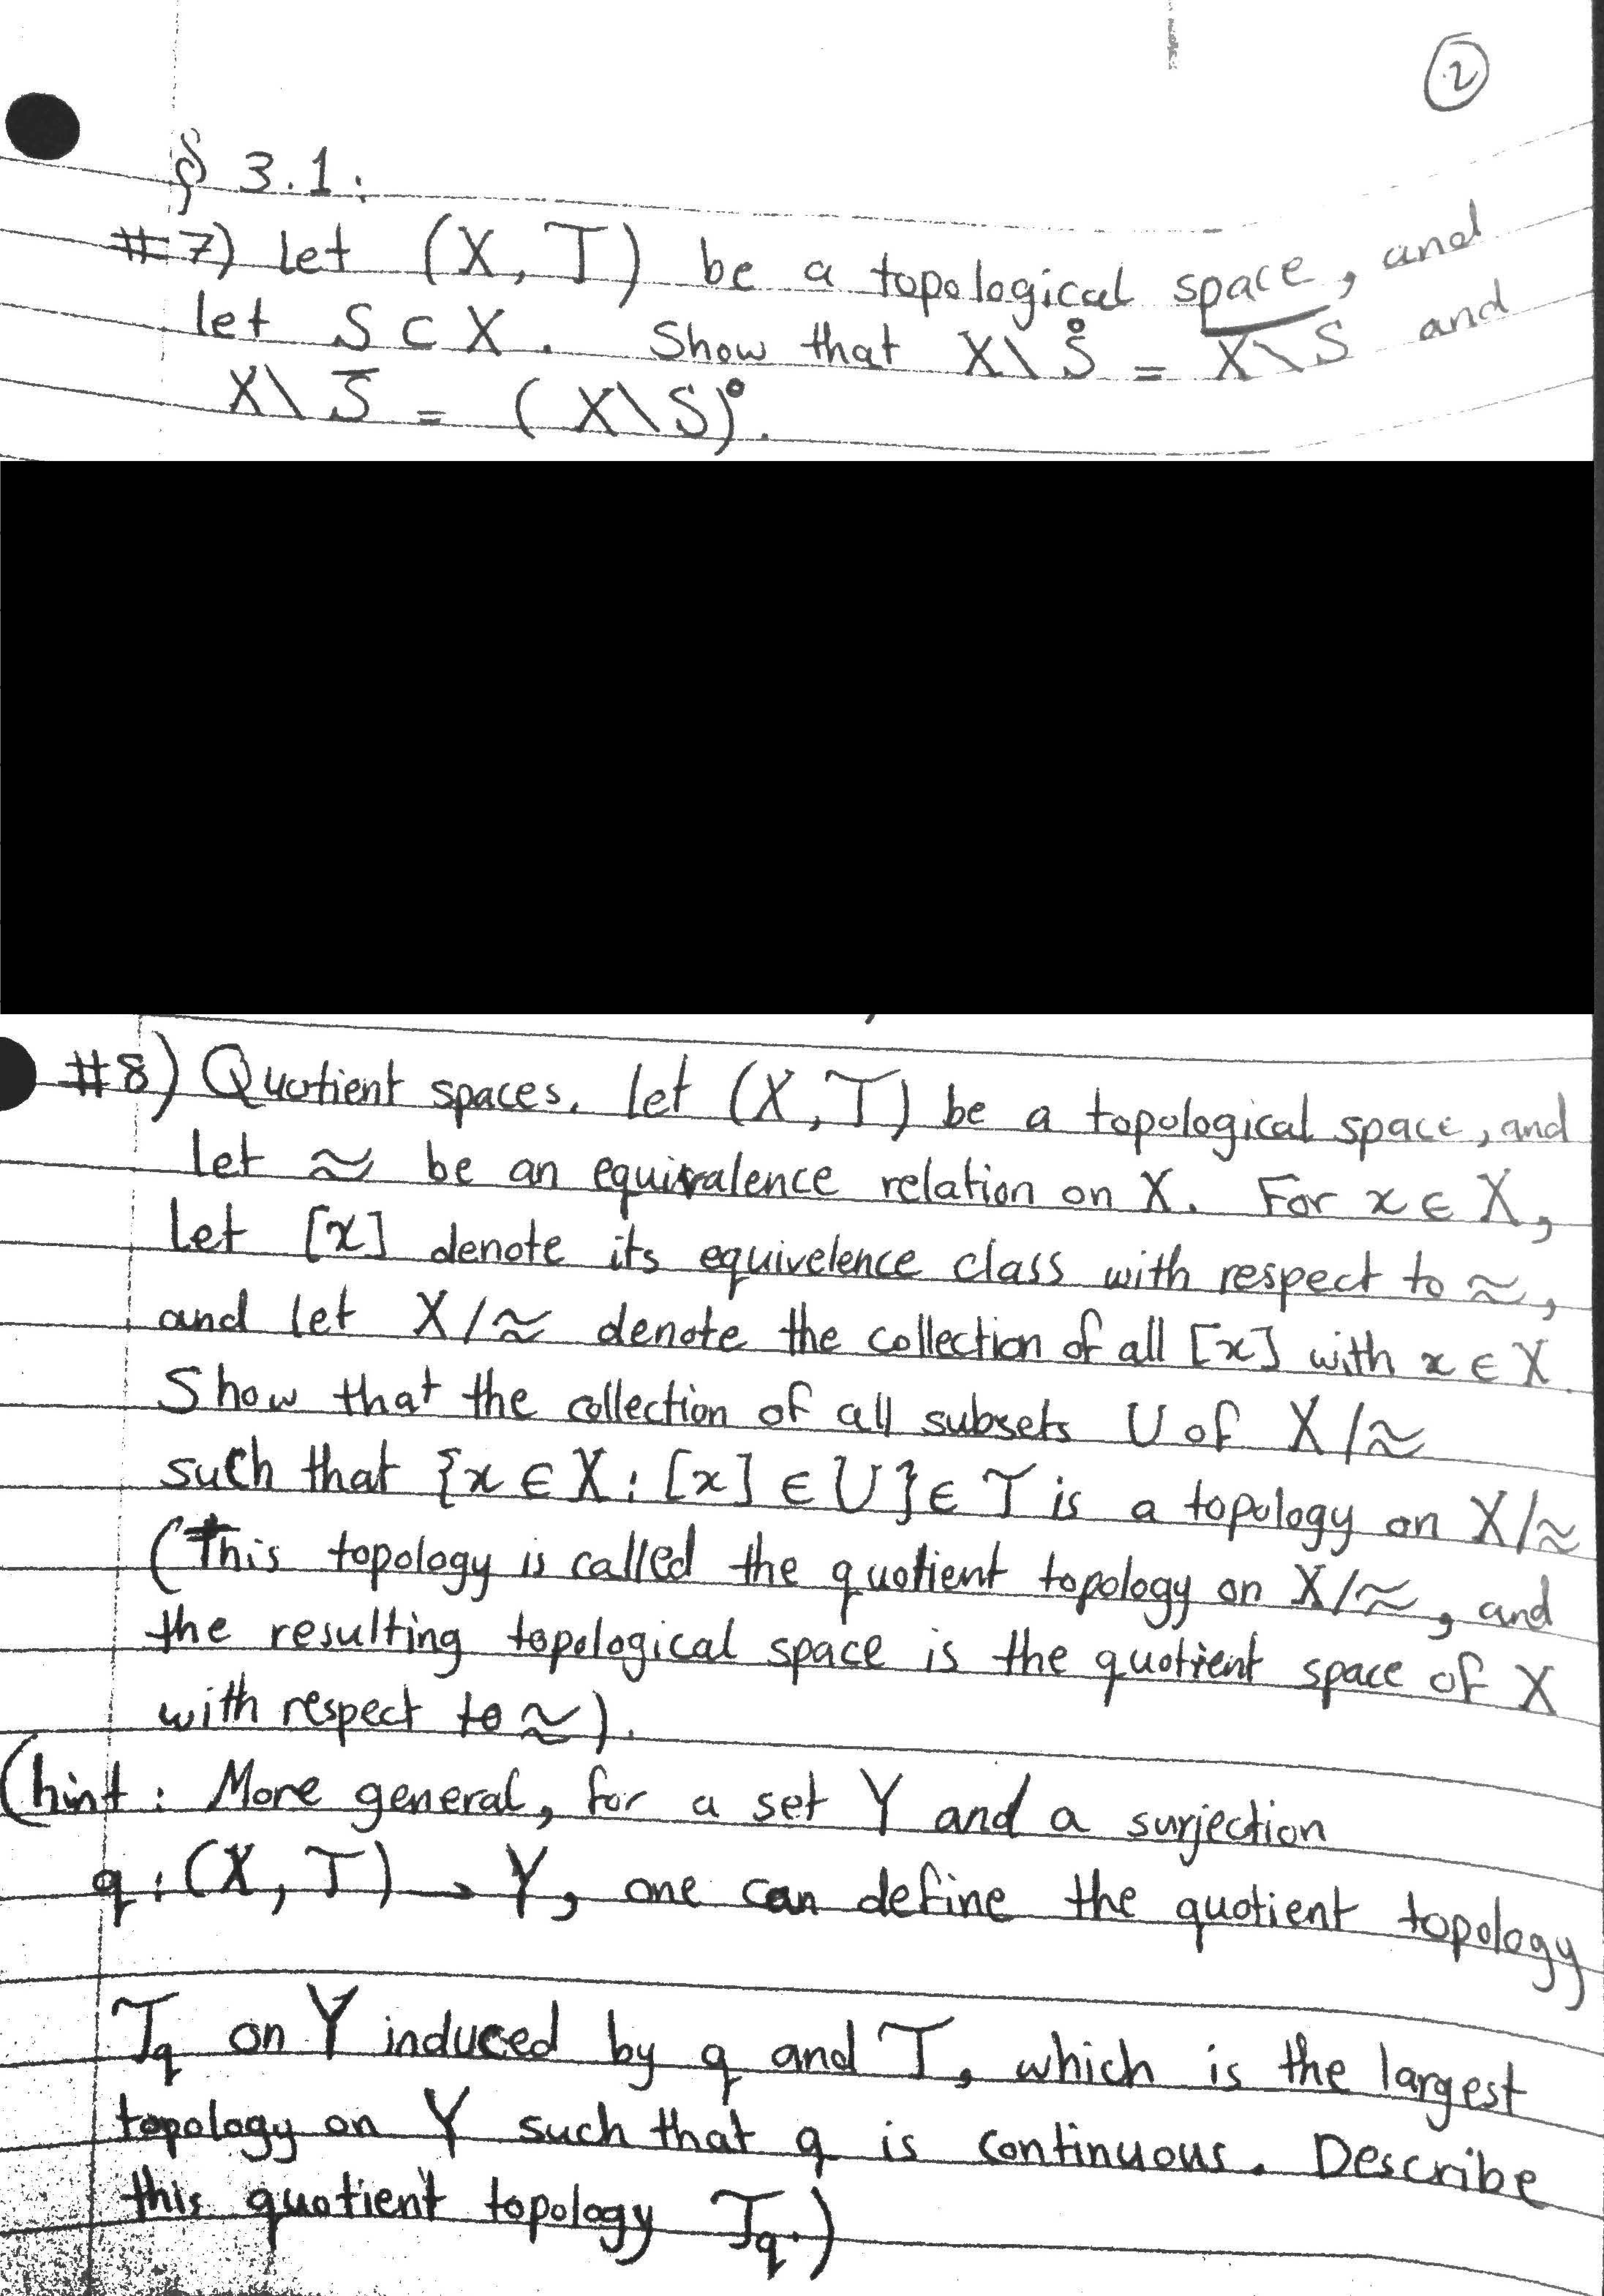 ②
§ 3.1:
#7) Let (X, T) be a topological space, and
let S ⊂ X. Show that X\S̊ = \overline{X\S} and
X\S̅ = (X\S)°.
#8) Quotient spaces. Let (X, T) be a topological space, and
let ≈ be an equivalence relation on X. For x ∈ X,
let [x] denote its equivelence class with respect to ≈,
and let X/≈ denote the collection of all [x] with x ∈ X.
Show that the collection of all subsets U of X/≈
such that {x ∈ X : [x] ∈ U} ∈ T is a topology on X/≈
(This topology is called the quotient topology on X/≈, and
the resulting topological space is the quotient space of X
with respect to ≈).
(hint: More general, for a set Y and a surjection
q : (X, T) → Y, one can define the quotient topology
T_q on Y induced by q and T, which is the largest
topology on Y such that q is continuous. Describe
this quotient topology T_q.)